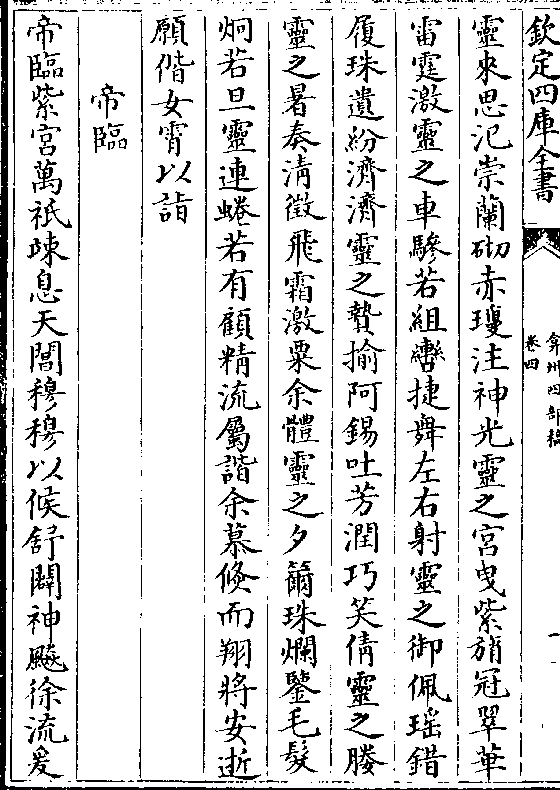 欽定四庫全書
弇州四部稿
卷四
靈來思汜崇蘭砌赤瓊注神光靈之宮曳紫旓冠翠華
雷霆激靈之車驂若組轡捷舞左右射靈之御佩瑶錯
履珠遺紛濟濟靈之贄揄阿錫吐芳潤巧笑倩靈之媵
靈之暑奏清徵飛霜激粟余體靈之夕籋珠爛鑒毛髮
炯若旦靈連蜷若有顧精流屬諧余慕倏而翔將安逝
願偕女霄以詣
帝臨
帝臨紫宮萬祇竦息天閶穆穆以候舒闢神飈徐流爰